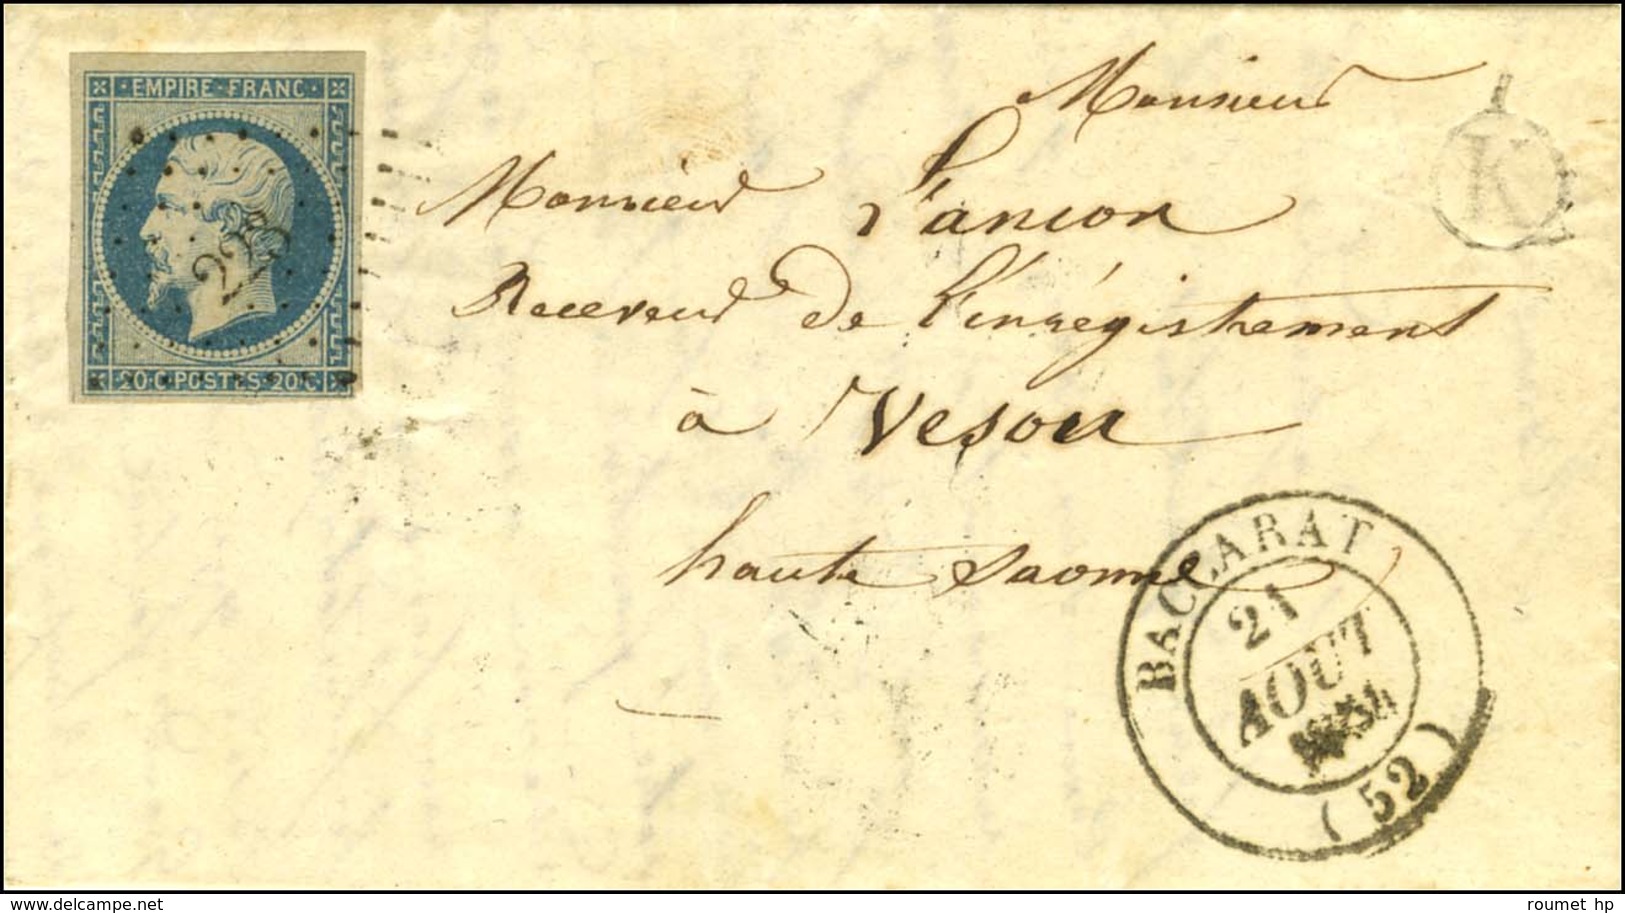 EMPIRE · FRANC ·
223
20 · C · POSTES · 20 · C
K
Monsieur
Monsieur Lancon
Receveur de l'enrégistrement
à Vesou
haute Saonne
BACCARAT
21
AOUT
(52)
www.delcampe.net
roumet hp